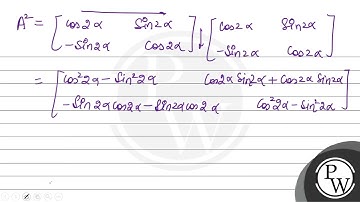 A² = [cos2α Sin2α
-Sin2α cos2α] ↓ [cos2α Sin2α
-Sin2α cos2α]
= [cos²2α - Sin²2α cos2α Sin2α + cos2α Sin2α
-Sin2α cos2α - Sin2α cos2α cos²2α - Sin²2α]
P
W